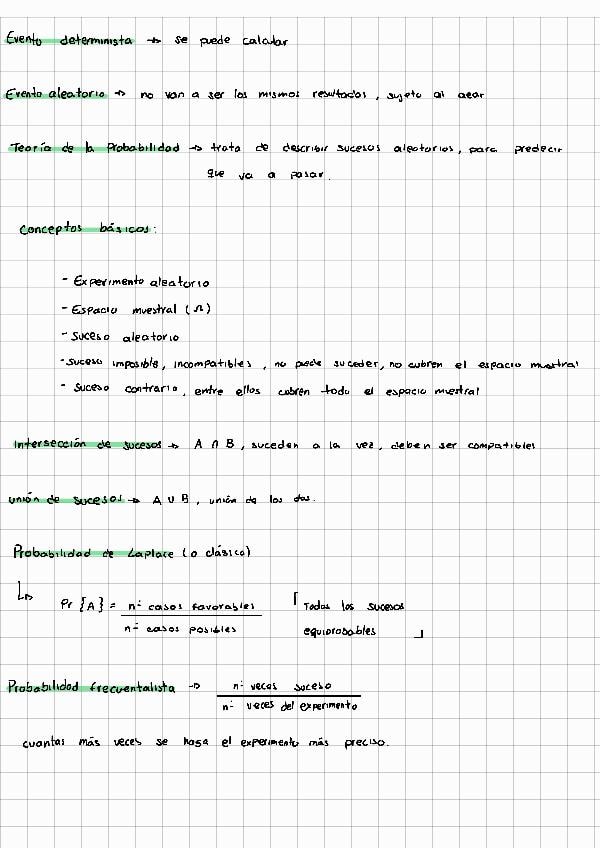 Evento determinista → se puede calcular
Evento aleatorio → no van a ser los mismos resultados, sujeto al azar
Teoría de la Probabilidad → trata de describir sucesos aleatorios, para predecir
que va a pasar.
Conceptos básicos:
- Experimento aleatorio
- Espacio muestral (Ω)
- Suceso aleatorio
- Suceso imposible, incompatibles, no puede suceder, no cubren el espacio muestral
- Suceso contrario, entre ellos cubren todo el espacio muestral
Intersección de sucesos → A ∩ B, suceden a la vez, deben ser compatibles
Unión de sucesos → A ∪ B, unión de los dos.
Probabilidad de Laplace (o clásico)
Pr {A} = nº casos favorables / nº casos posibles
Todos los sucesos
equiprobables
Probabilidad frecuentalista → nº veces suceso / nº veces del experimento
cuantas más veces se haga el experimento más preciso.